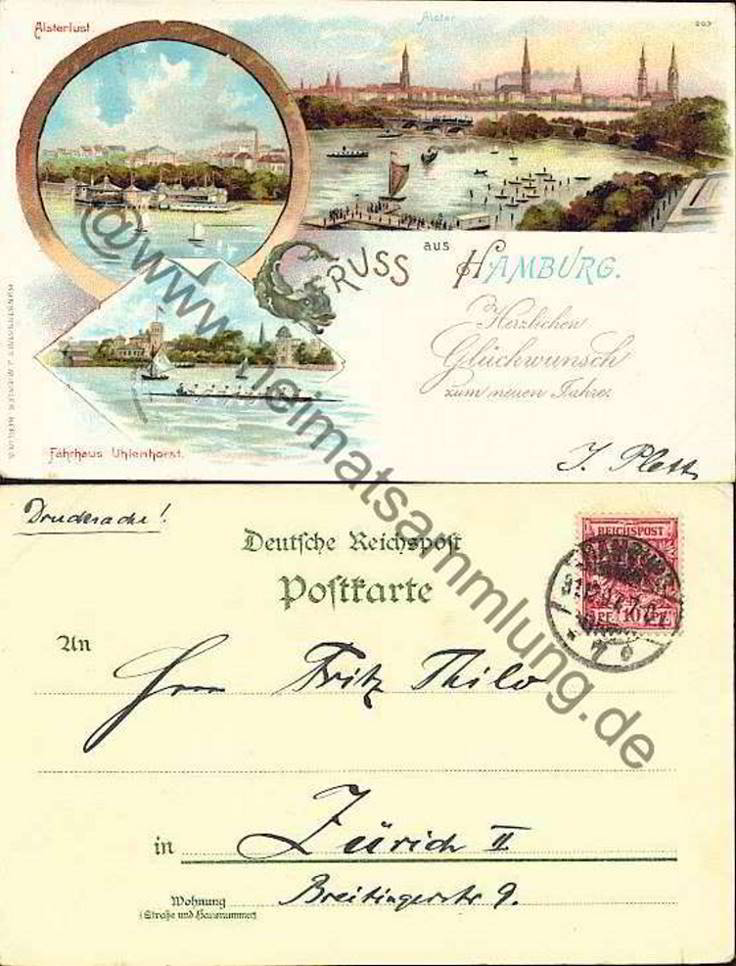 Alsterlust.
Alster
GRUSS aus HAMBURG.
Herzlichen
Glückwunsch
zum neuen Jahre.
Fährhaus Uhlenhorst.
J. Plett
@www.heimatsammlung.de
Drucksache!
Deutsche Reichspost
Postkarte
REICHSPOST
PF. 10 PF.
HAMBURG
An
Herrn Fritz Thilo
in Zürich II
Wohnung Breitingerstr 9.
(Straße und Hausnummer)